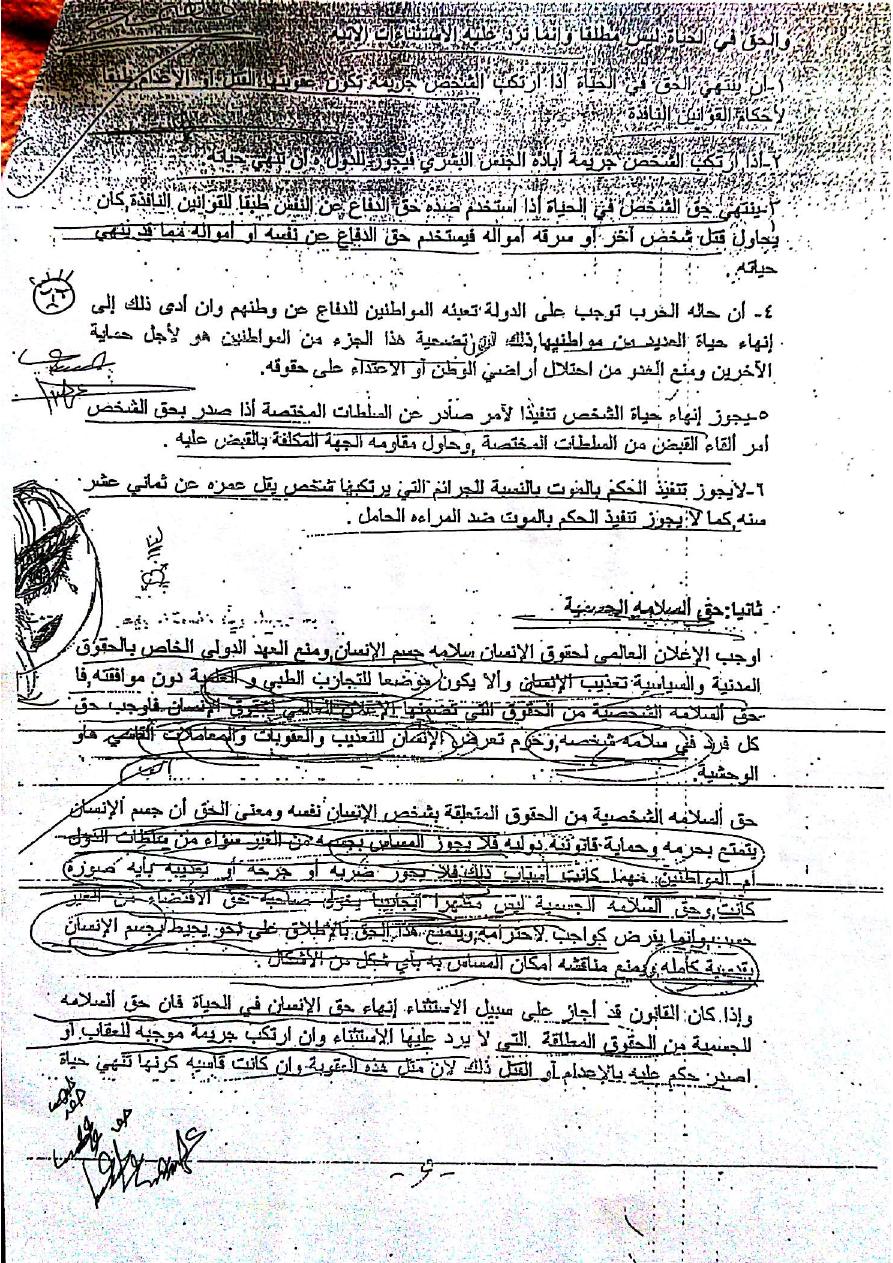 والحق في الحياة ليس مطلقا وإنما ترد عليه الاستثناءات الآتية
١-أن ينتهي الحق في الحياة أذا ارتكب الشخص جريمة تكون عقوبتها القتل أو الإعدام طبقا
لأحكام القوانين النافذة
٢-أذا ارتكب الشخص جريمة أباده الجنس البشري فيجوز للدوله أن تنهي حياته
٣-ينتهي حق الشخص في الحياة أذا استخدم ضده حق الدفاع عن النفس طبقا للقوانين النافذة,كان
يحاول قتل شخص آخر أو سرقه أمواله فيستخدم حق الدفاع عن نفسه أو أمواله مما قد ينهي
حياته.
٤- أن حاله الحرب توجب على الدولة تعبئه المواطنين للدفاع عن وطنهم وان أدى ذلك إلى
إنهاء حياة العديد من مواطنيها,ذلك تضحية هذا الجزء من المواطنين هو لأجل حماية
الآخرين ومنع العدو من احتلال أراضي الوطن أو الاعتداء على حقوقه.
٥-يجوز إنهاء حياة الشخص تنفيذا لآمر صادر عن السلطات المختصة أذا صدر بحق الشخص
أمر ألقاء القبض من السلطات المختصة ,وحاول مقاومه الجهة المكلفة بالقبض عليه .
٦-لايجوز تنفيذ الحكم بالموت بالنسبة للجرائم التي يرتكبها شخص يقل عمره عن ثماني عشر
سنه,كما لا يجوز تنفيذ الحكم بالموت ضد المراءه الحامل .
ثانيا:حق السلامه الجسمية
اوجب الإعلان العالمي لحقوق الإنسان سلامه جسم الإنسان,ومنع العهد الدولي الخاص بالحقوق
المدنية والسياسية تعذيب الإنسان وألا يكون موضعا للتجارب الطبي و العلمية دون موافقته,فا
حق السلامه الشخصية من الحقوق التي تضمنها الإعلان العالمي لحقوق الإنسان فاوجب حق
كل فرد في سلامه شخصه,وحرم تعرض الإنسان للتعذيب والعقوبات والمعاملات القاسي هاو
الوحشية.
حق السلامه الشخصية من الحقوق المتعلقة بشخص الإنسان نفسه ومعنى الحق أن جسم الإنسان
يتمتع بحرمه وحماية قانونيه دوليه فلا يجوز المساس بجسمه من الغير سواء من سلطات الدول
أم المواطنين مهما كانت أسباب ذلك فلا يجوز ضربه أو جرحه أو تعذيبه بأيه صوره
كانت,وحق السلامه الجسمية ليس مظهرا ايجابيا يخول صاحبه حق الاقتضاء من الغير
حسب,وإنما يفرض كواجب لاحترامه,ويتمتع هذا الحق بالإطلاق على نحو يحيط بجسم الإنسان
بقدسية كامله,ويمنع مناقشه امكان المساس به بأي شكل من الأشكال .
وإذا كان القانون قد أجاز على سبيل الاستثناء إنهاء حق الإنسان في الحياة فان حق السلامه
الجسمية من الحقوق المطلقة التي لا يرد عليها الاستثناء وان ارتكب جريمة موجبه للعقاب أو
اصدر حكم عليه بالإعدام أو القتل ذلك لان مثل هذه العقوبة وان كانت قاسيه كونها تنهي حياة
- ٩ -